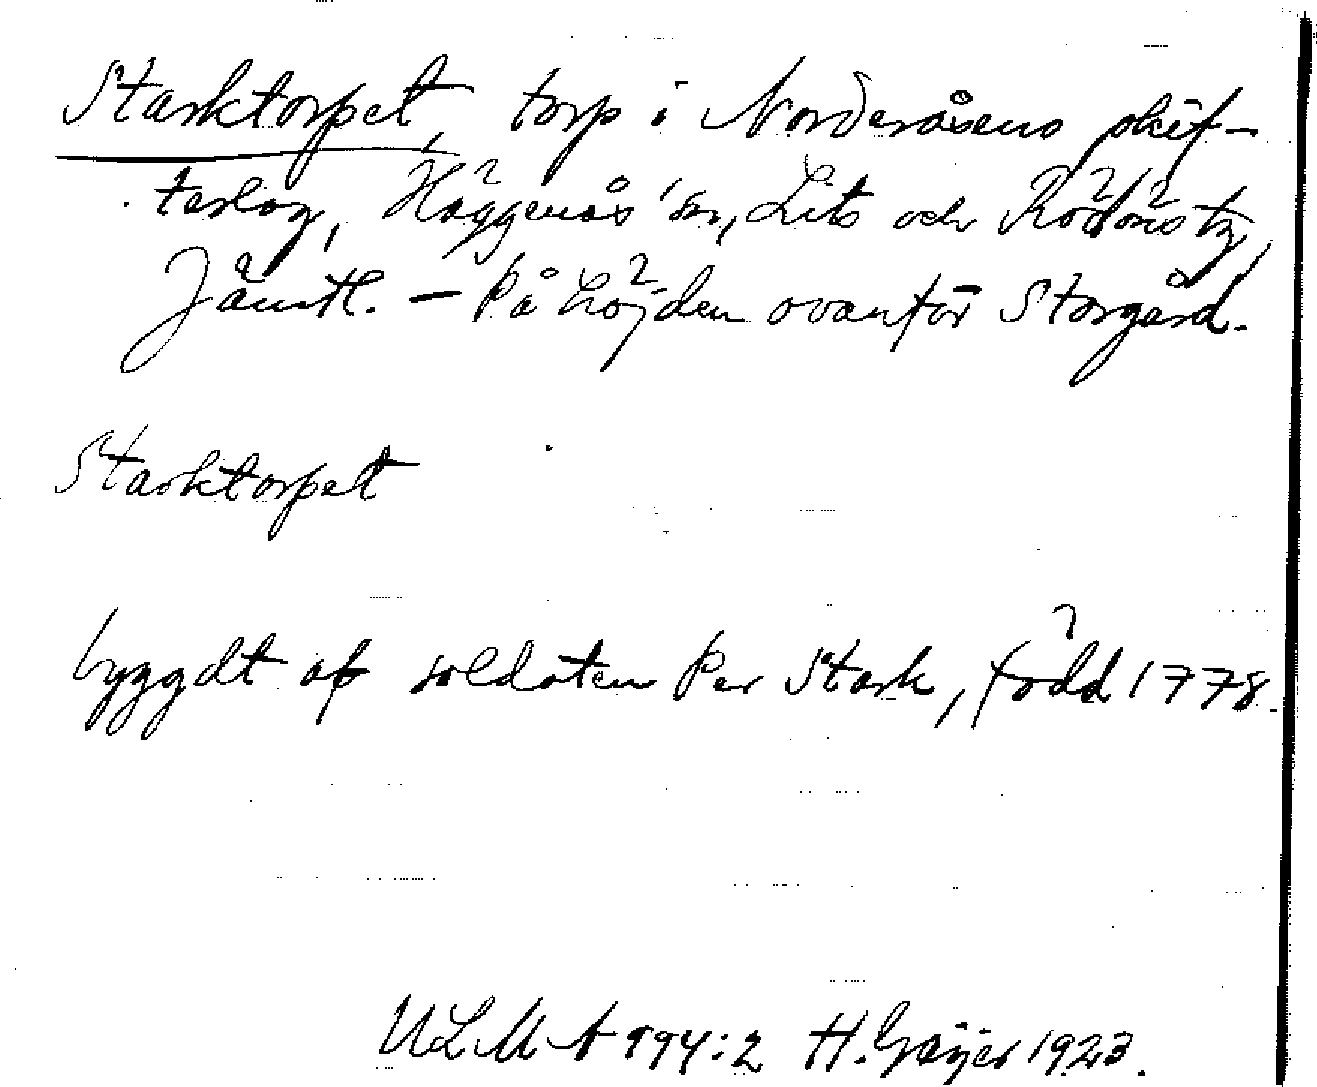 Starktorpet, torp i Norderåsens skif-
terlag, Häggenås sn, Lits och Rödöns tg,
Jämtl. — På höjden ovanför Storgård.
Starktorpet
byggdt af soldaten Per Stark, född 1778.
ULMA 994:2 H. Geijer 1923.